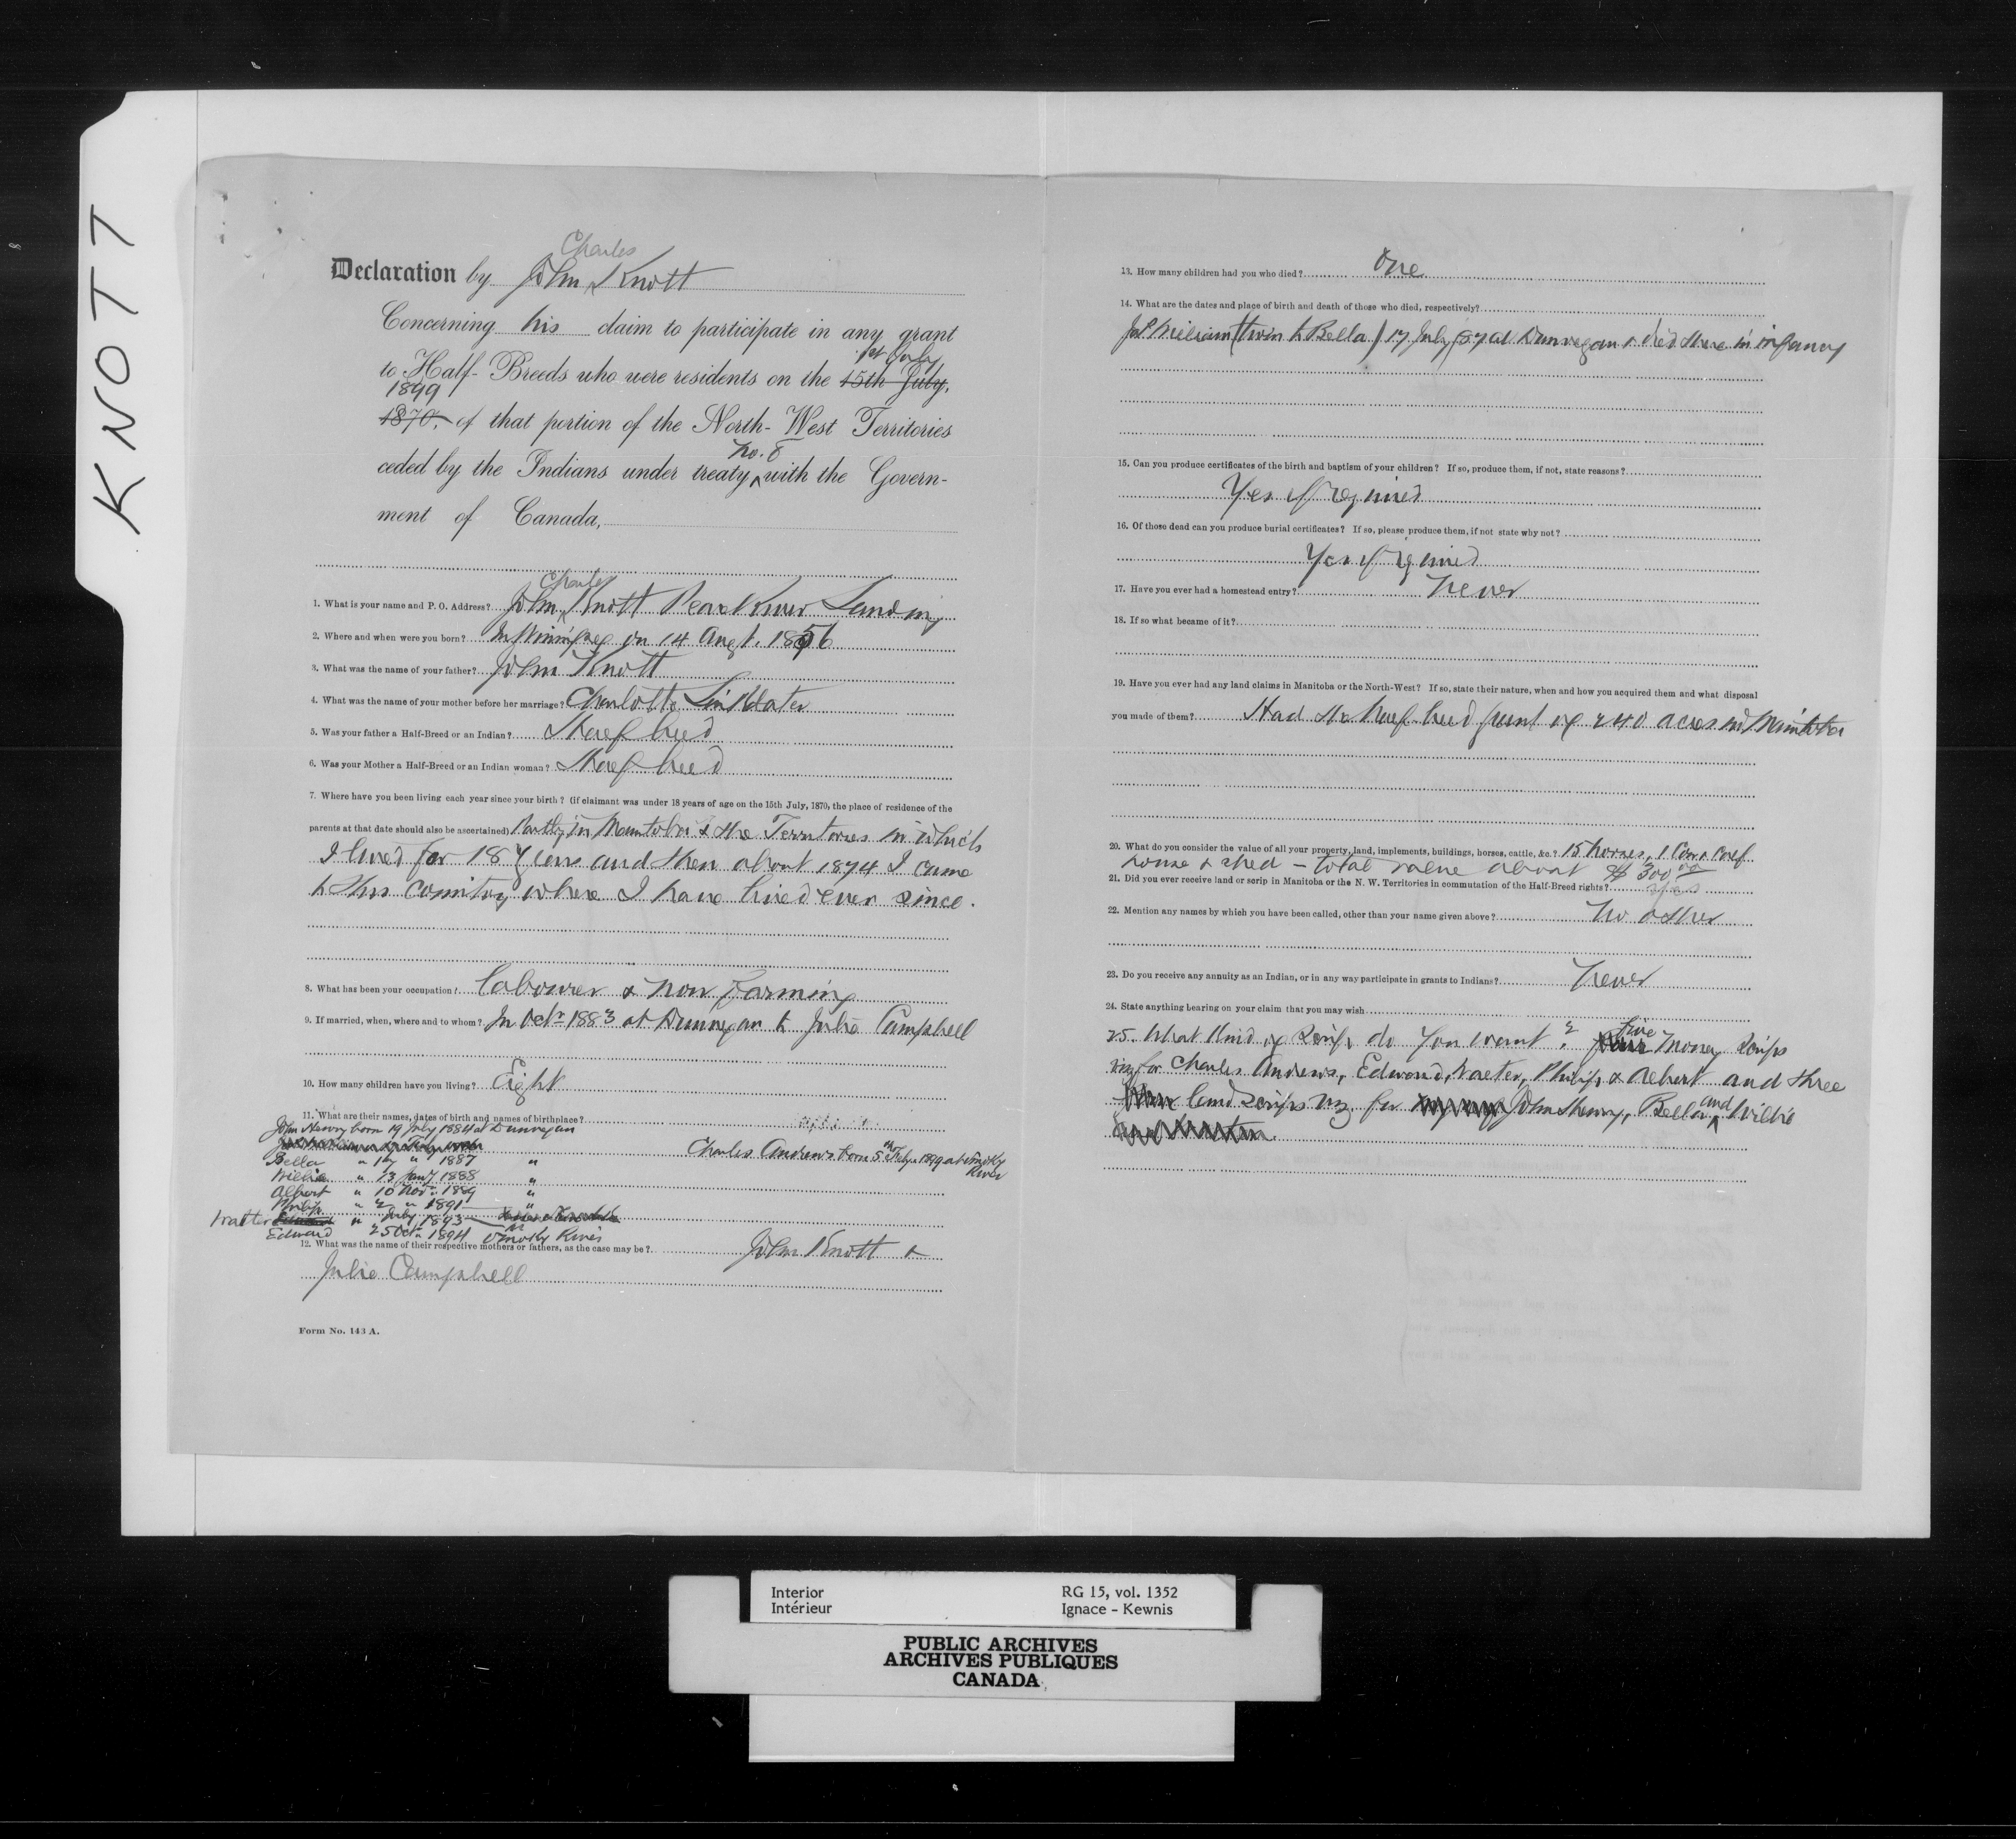 KNOTT
Declaration by John Charles Knott
Concerning his claim to participate in any grant
to Half-Breeds who were residents on the 15th July, 1st July
1870, 1899 of that portion of the North-West Territories
ceded by the Indians under treaty No. 8 with the Govern-
ment of Canada,
1. What is your name and P. O. Address? John Charles Knott Peace River Landing
2. Where and when were you born? In Winnipeg on 14 Augt. 1856
3. What was the name of your father? John Knott
4. What was the name of your mother before her marriage? Charlotte Sinklater
5. Was your father a Half-Breed or an Indian? Half breed
6. Was your Mother a Half-Breed or an Indian woman? Half breed
7. Where have you been living each year since your birth? (if claimant was under 18 years of age on the 15th July, 1870, the place of residence of the
parents at that date should also be ascertained) Partly in Manitoba & the Territories in which
I lived for 18 years and then about 1874 I came
to this country where I have lived ever since.
8. What has been your occupation? Labourer & now farming
9. If married, when, where and to whom? In Octr 1883 at Dunvegan to Julie Campbell
10. How many children have you living? Eight
11. What are their names, dates of birth and names of birthplace?
John Henry born 19 July 1884 at Dunvegan
Bella " 17 " 1887 "
Charles Andrews born 5th Feby 1899 at Smoky
River
Willie " 13 Jany 1888 "
Albert " 10 Novr 1889 "
Philip " 2 " 1891 "
Walter " July 1893
Edward " 25 Octr 1894 Smoky River
12. What was the name of their respective mothers or fathers, as the case may be? John Knott &
Julie Campbell
Form No. 143 A.
13. How many children had you who died? One
14. What are the dates and place of birth and death of those who died, respectively?
William (twin to Bella) 17 July 87 at Dunvegan & died there in infancy
15. Can you produce certificates of the birth and baptism of your children? If so, produce them, if not, state reasons?
Yes if required
16. Of those dead can you produce burial certificates? If so, please produce them, if not state why not?
Yes if required
17. Have you ever had a homestead entry? Never
18. If so what became of it?
19. Have you ever had any land claims in Manitoba or the North-West? If so, state their nature, when and how you acquired them and what disposal
you made of them? Had the half breed grant of 240 acres in Manitoba
20. What do you consider the value of all your property, land, implements, buildings, horses, cattle, &c.? 15 horses, 1 Cow & calf
house & shed - total value about $300 00
21. Did you ever receive land or scrip in Manitoba or the N. W. Territories in commutation of the Half-Breed rights? Yes
22. Mention any names by which you have been called, other than your name given above? No other
23. Do you receive any annuity as an Indian, or in any way participate in grants to Indians? Never
24. State anything bearing on your claim that you may wish
25. What kind of Scrip do you want? five Money Scrips
viz for Charles Andrews, Edward, Walter, Philip & Albert and three
land scrips viz. for John Henry, Bella and Willie
Interior
Intérieur
RG 15, vol. 1352
Ignace - Kewnis
PUBLIC ARCHIVES
ARCHIVES PUBLIQUES
CANADA